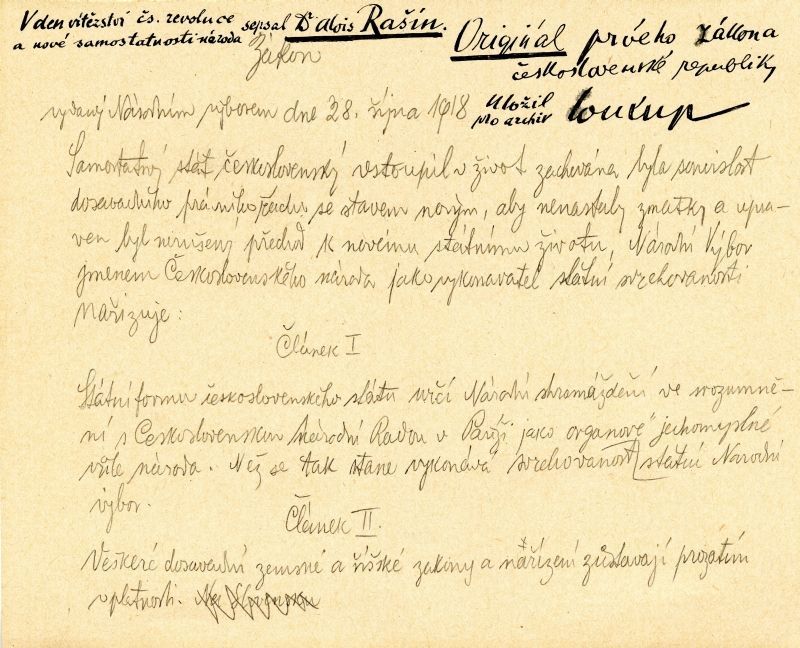 V den vítězství čs. revoluce
a nové samostatnosti národa sepsal Dr Alois Rašín.
Originál prvého zákona
československé republiky
Uložil
pro archiv Soukup
Zákon
vydaný Národním výborem dne 28. října 1918
Samostatný stát československý vstoupil v život zachována byla souvislost
dosavadního právního řádu se stavem novým, aby nenastaly zmatky a upra-
ven byl nerušený přechod k novému státnímu životu, Národní Výbor
jmenem Československého národa jako vykonavatel státní svrchovanosti
nařizuje:
Článek I
Státní formu československého státu určí Národní shromáždění ve srozumně-
ní s Československou Národní Radou v Paříži jako organové jednomyslné
vůle národa. Než se tak stane vykonává svrchovanost státní Národní
výbor.
Článek II.
Veškeré dosavadní zemské a říšské zákony a nařízení zůstavají prozatím
v platnosti.